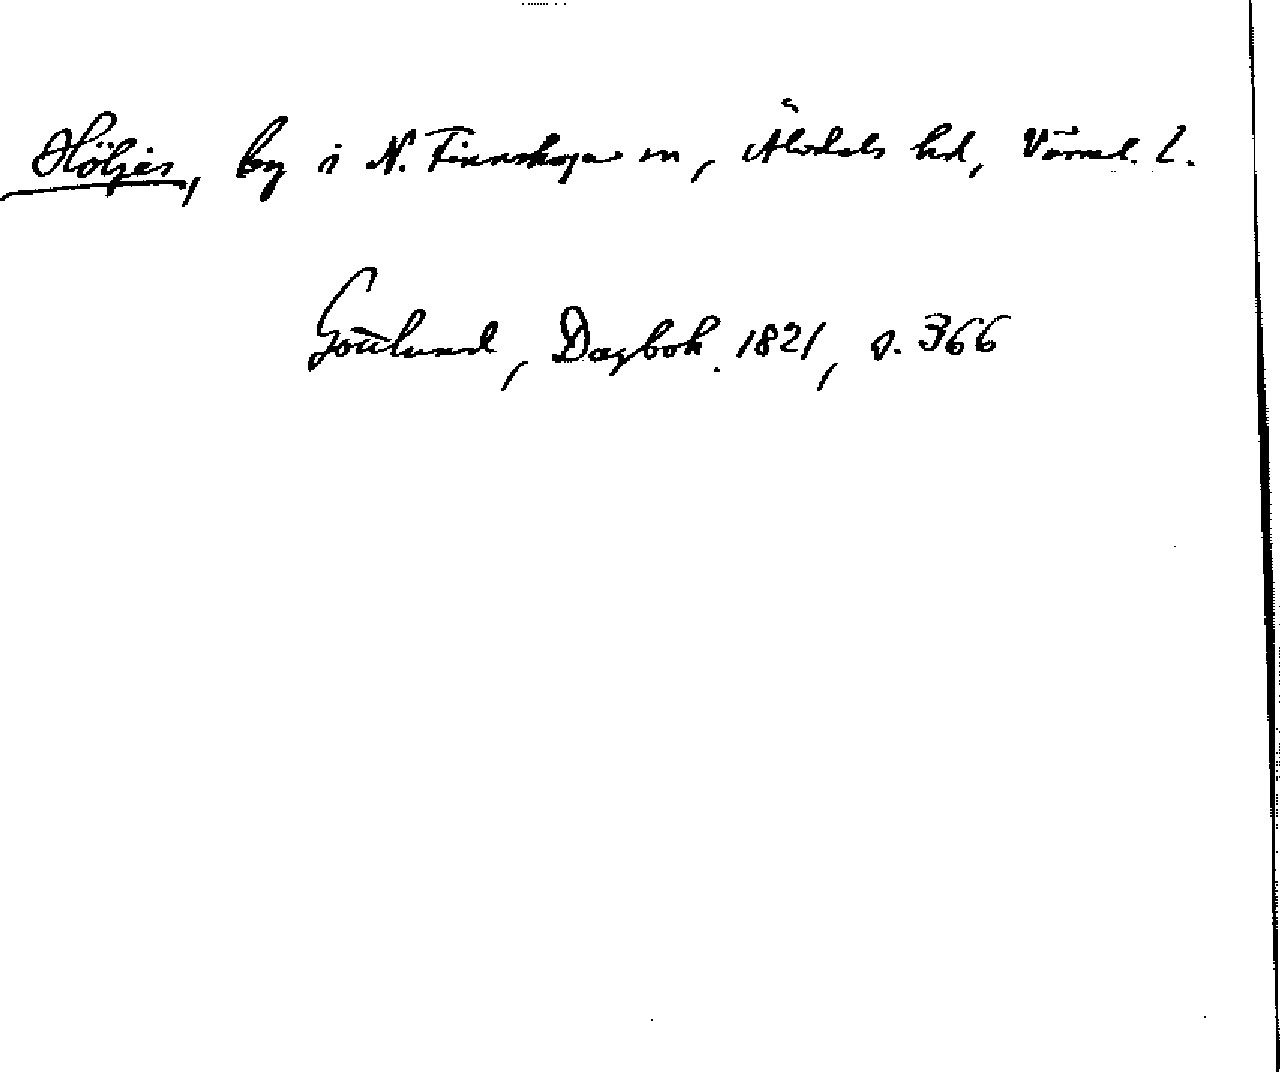 Höljes, by i N. Finnskoga sn, Älvdals hd, Värml. l.
Gottlund, Dagbok. 1821, s. 366